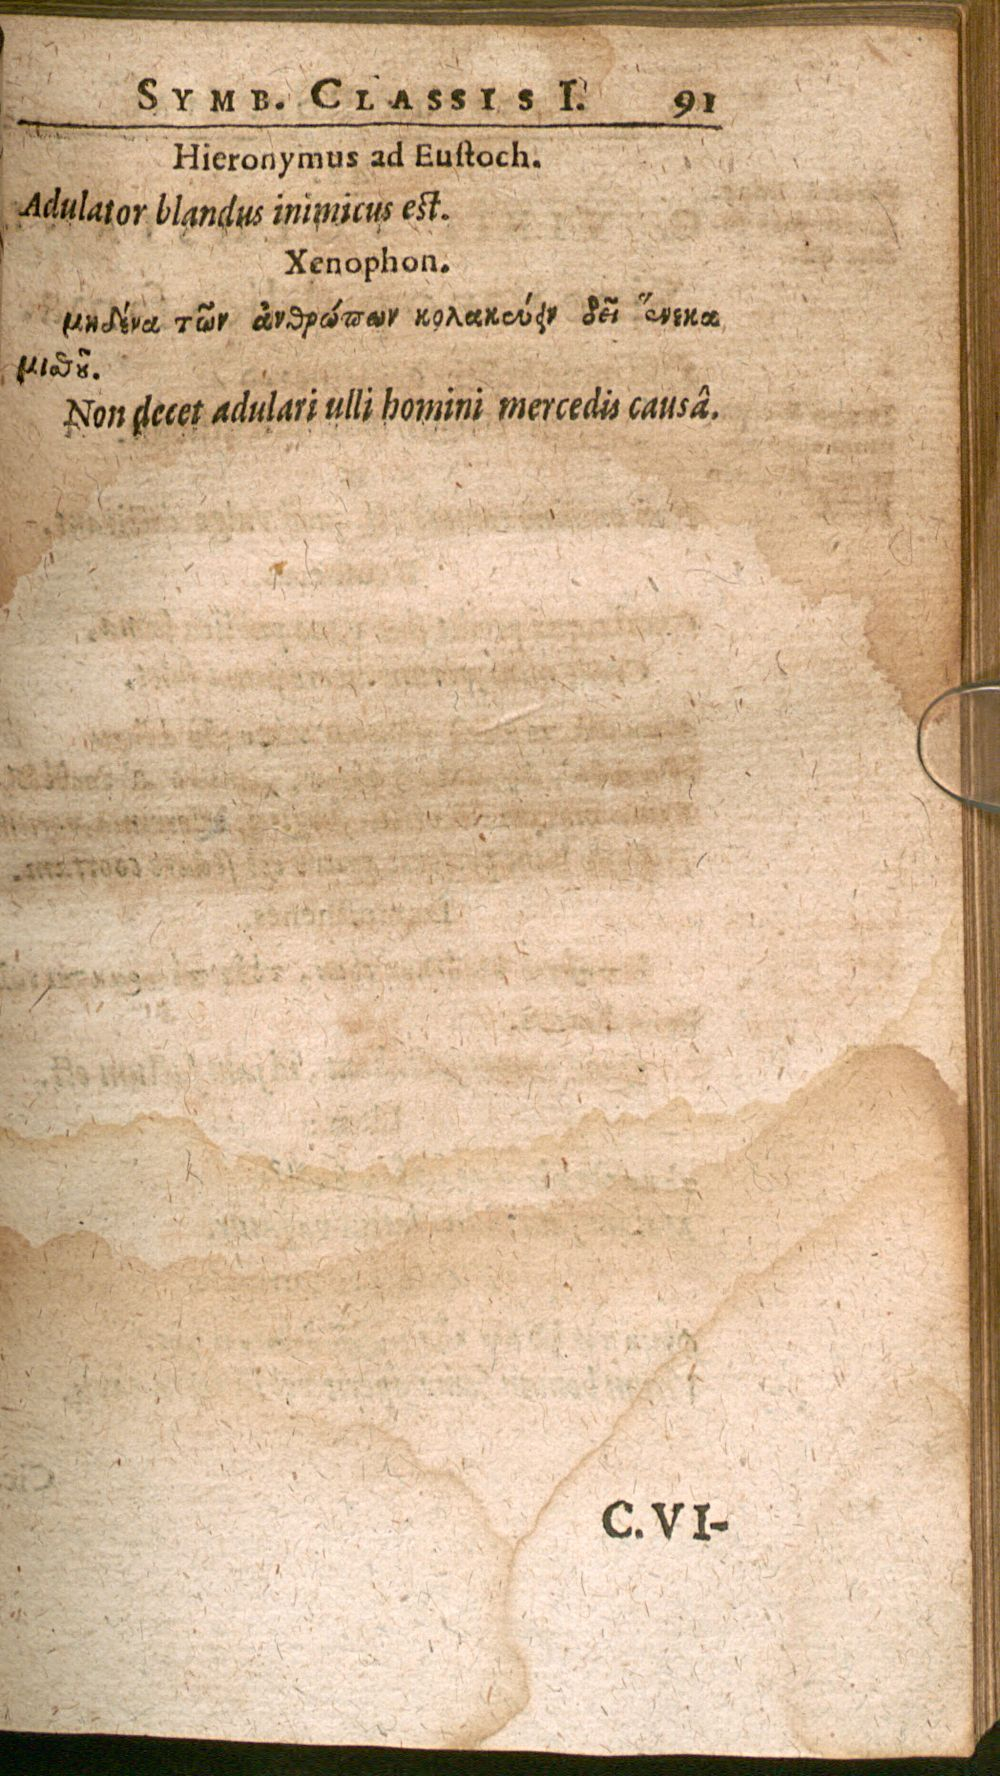 SYMB. CLASSIS I. 91
Hieronymus ad Eustoch.
Adulator blandus inimicus est.
Xenophon.
μηδένα τῶν ἀνθρώπων κολακεύειν δεῖ ἕνεκα
μιθοῦ.
Non decet adulari ulli homini mercedis causâ.
C. VI-